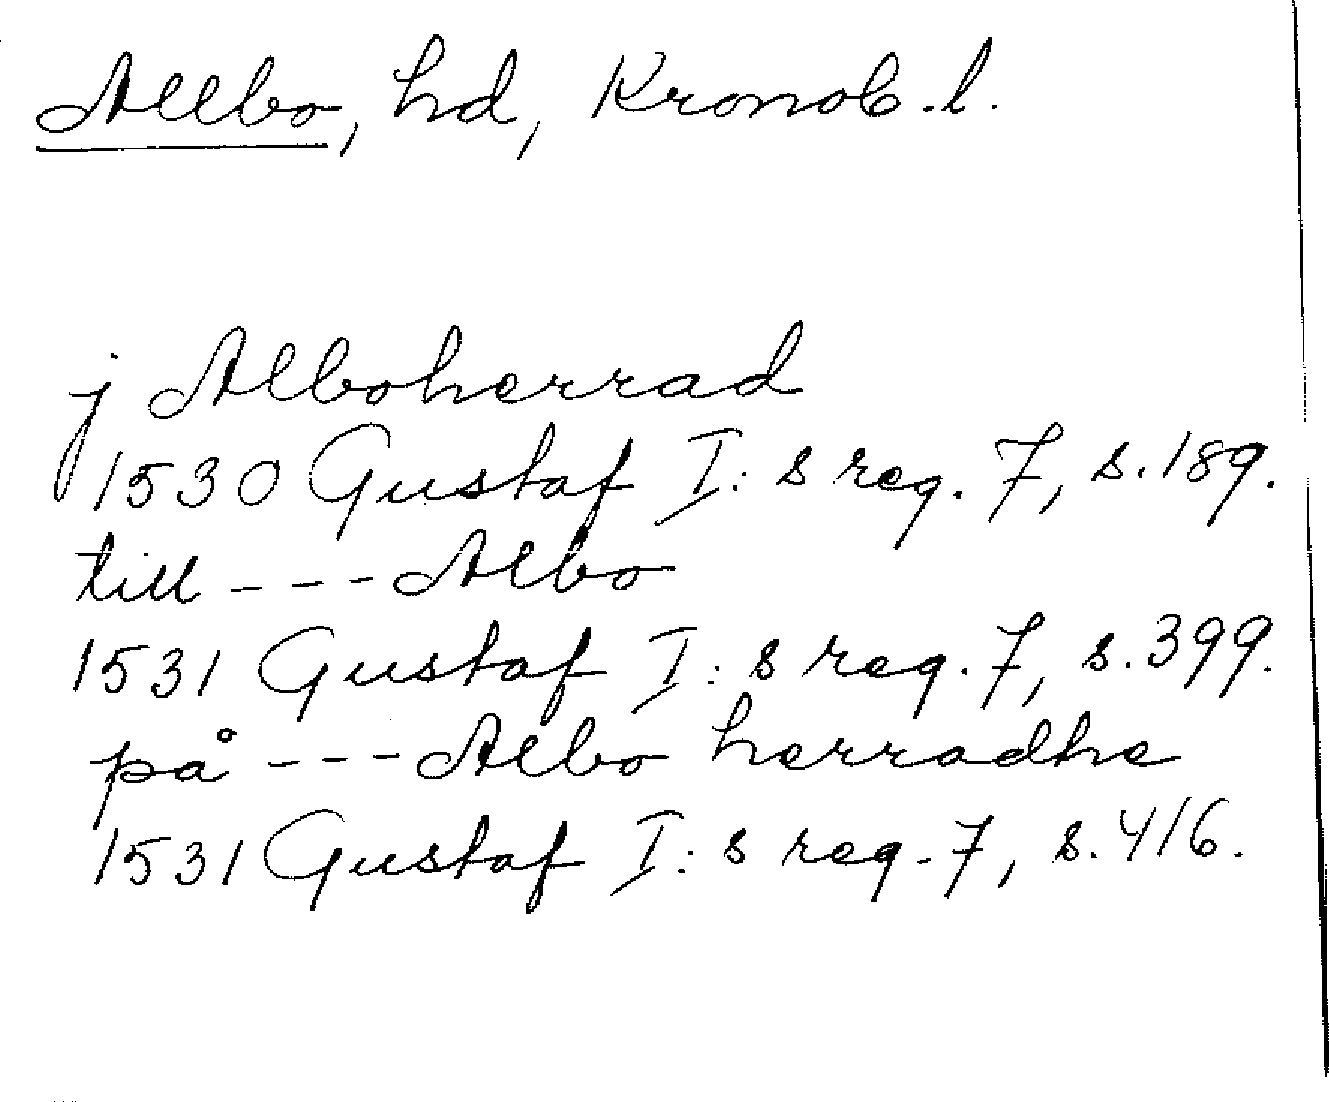 Allbo, hd, Kronob. l.
j Alboherrad
1530 Gustaf I: s reg. 7, s. 189.
till --- Albo
1531 Gustaf I: s reg. 7, s. 399.
på --- Albo herradhe
1531 Gustaf I: s reg. 7, s. 416.